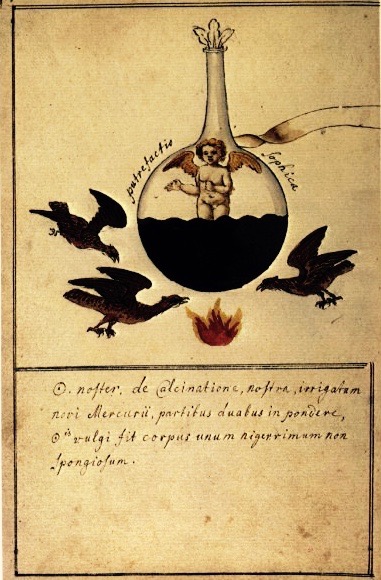 putrefactio
sophica
☉. noſter. de Calcinatione, noſtra, irrigatum
novi Mercurii, partibus duabus in pondere,
☉is vulgi fit corpus unum nigerrimum non
ſpongioſum.